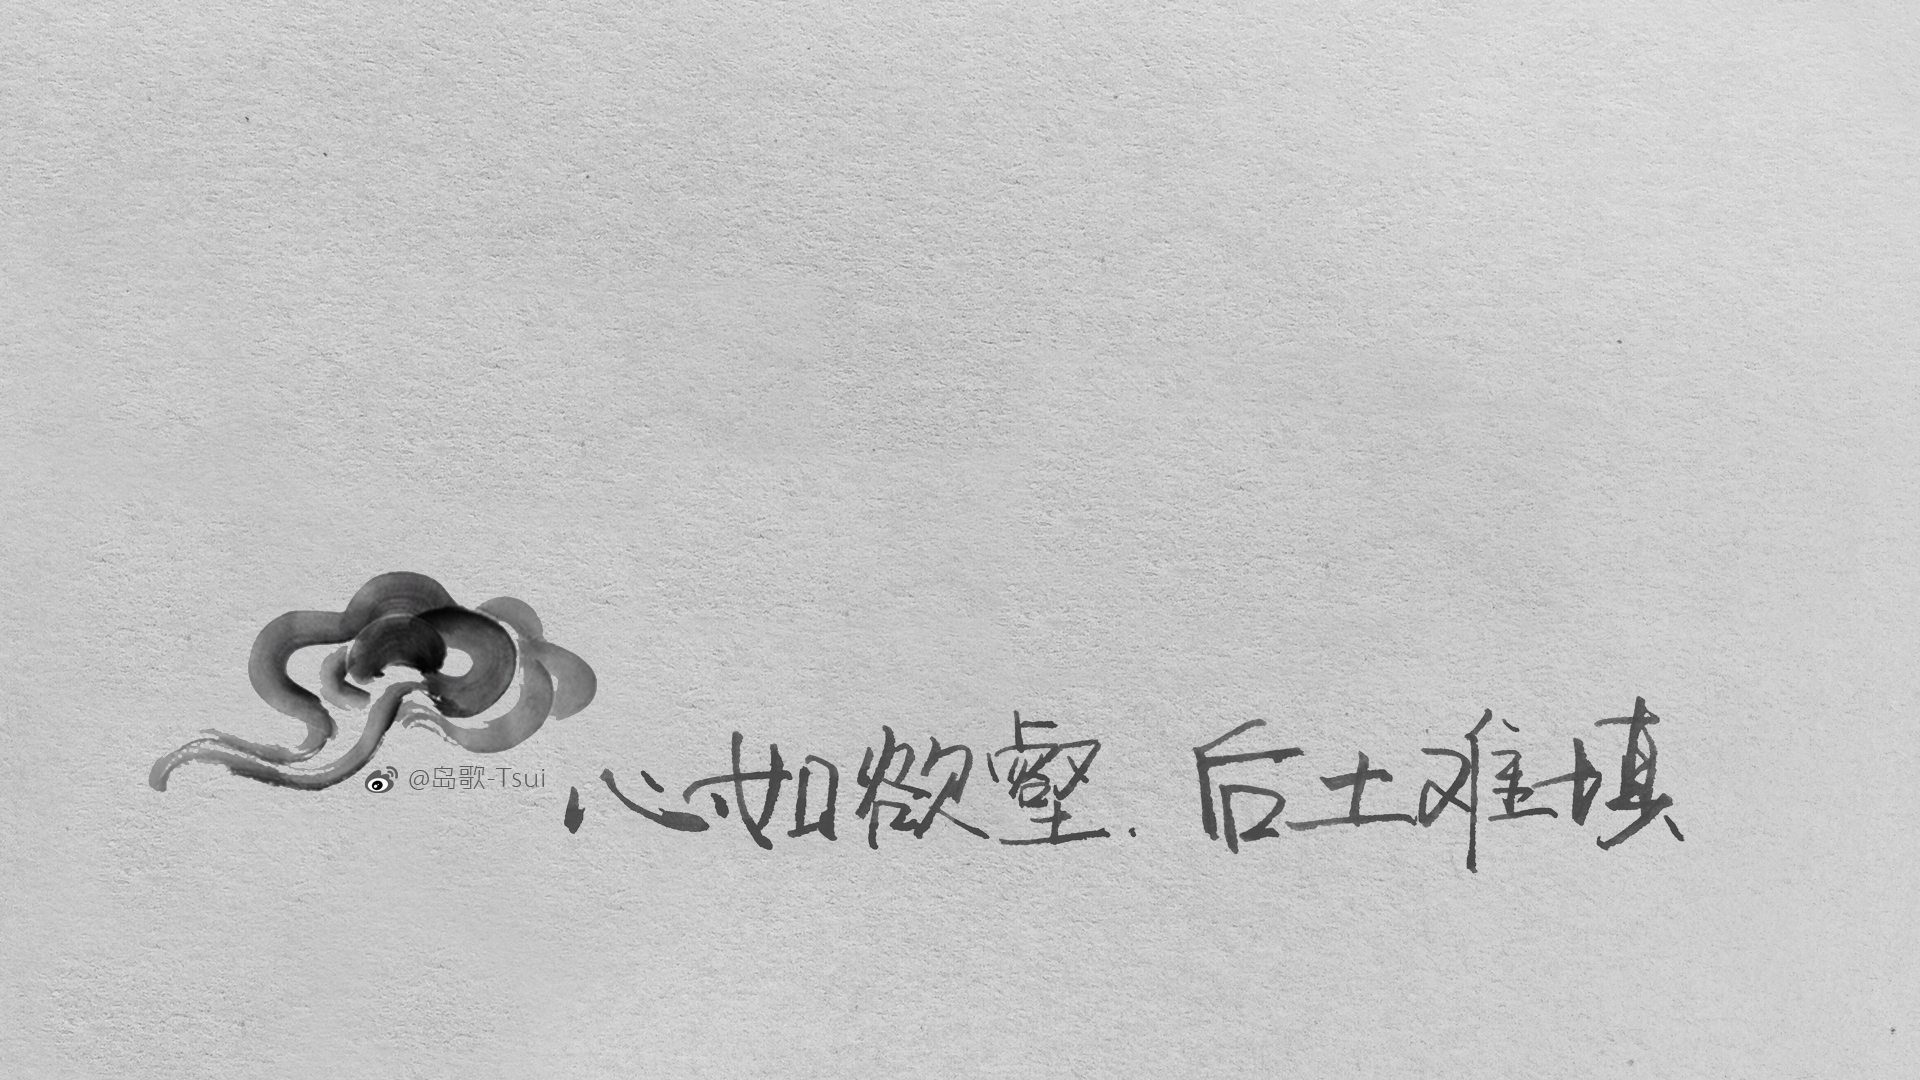 @岛歌-Tsui
心如欲壑.后土难填